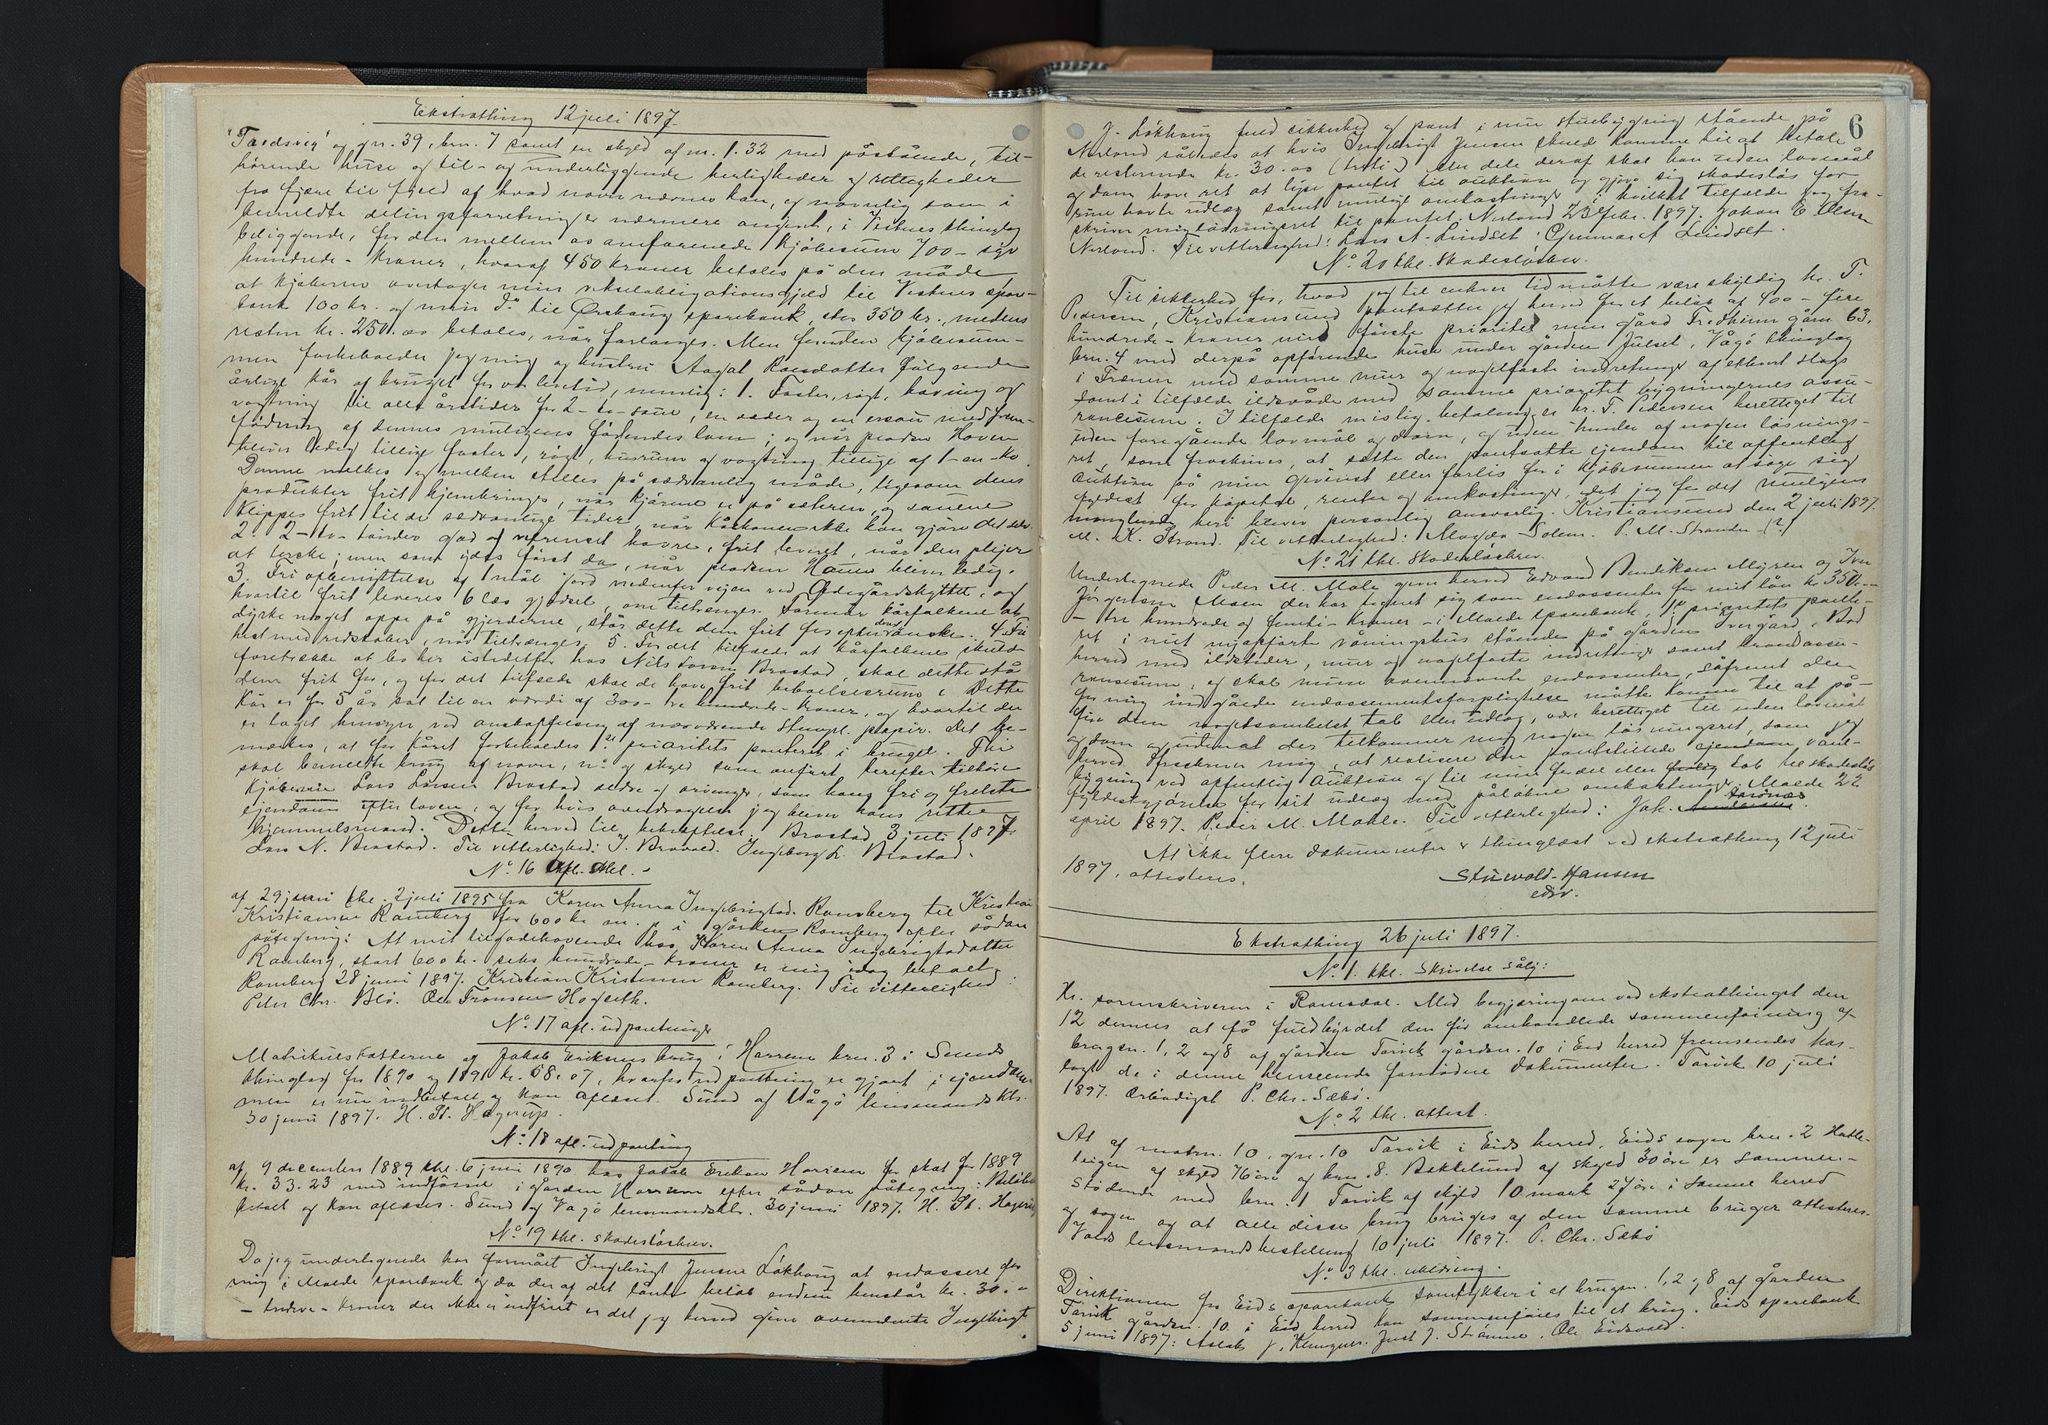 Ekstrathing 12 juli 1897.
"Tardsvig" og gn. 39, brn. 7 samt en skyld af m. 1.32 med påstående, til-
hørende huse og til- og underliggende herligheder og rettigheder
fra fjære til fjeld af hvad navn nævnes kan, og navnlig som i
bemeldte delingsforretning er nærmere angivet, i Vestnes thinglag
beliggende, for den mellem os omforenede kjøbesum 700 - syv
hundrede - kroner, hvoraf 450 kroner betales på den måde
at kjøberen overtager min vekselobligationsgjæld til Vestnes spare-
bank 100 kr. og min do. til Ørskoug sparebank, stor 350 kr., medens
resten kr. 250.00 betales, når forlanges. Men foruden kjøbesum-
men forbeholder jeg mig og hustru Aagot Knudsdatter følgende
årlige kår af bruget for vor levetid, nemlig: 1. Foster, røgt, havning og
vogtning til alle årstider for 2 - to - sauer, en væder og en ensau med frem-
fødning af dennes muligens fødendes lam; og når pladsen Hoven
bliver ledig tillige foster, røgt, husrum og vogtning tillige af 1 - en - ko.
Denne melkes og melken stelles på sædvanlig måde, ligesom dens
produkter frit hjembringes, når kjørene er på sæteren, og sauene
klippes frit til de sædvanlige tider, når kårkonen ikke kan gjøre det selv.
2. 2 - to - tønder god og velrenset havre, frit leveret, når den plejer
at tærske; men som ydes først da, når pladsen Hoven bliver ledig.
3. Fri afbenyttelse af 1 mål jord nedenfor vejen ved Ødegårdskyttet, og
hvortil frit leveres 6 læs gjødsel, om tiltrænges. Formår kårfolkene at
dyrke noget oppe på gjerderne, står dette dem frit for efter deres ønske. 4. Fri
hest med redskaber, når tiltrænges. 5. For det tilfælde at kårfolkene skulde
foretrække at bo her istedetfor hos Nils Larsen Brastad, skal dette stå
dem frit for, og for det tilfælde skal de have frit beboelsesrum. Dette
kår er for 5 år sat til en værdi af 300 - tre hundrede - kroner, og hvortil der
er taget hensyn ved anskaffelsen af nærværende stempl. papir. Det be-
mærkes, at for kåret forbeholdes 1ste prioritets panteret i bruget. Thi
skal bemeldte brug af navn, no. og skyld som anført herefter tilhøre
kjøberen Lars Larsen Brastad selve og arvinger, som hans fri og frelste
ejendom efter loven, og for hvis overdragelse jeg bliver hans rette
hjemmelsmand. Dette herved til bekræftelse. Brastad 3 juli 1897.
Lars N. Brastad. Til vitterlighed: J. Bravold. Ingeborg L. Brastad.
No. 16 afl. obl.
af 29 juni thl. 2 juli 1895 fra Karen Anna Ingebrigtsd. Ramberg til Kristian
Kristiansen Ramberg for 600 kr. m. p. i gården Ramberg efter sådan
påtegning: At mit tilgodehavende hos Karen Anna Ingebrigtsdatter
Ramberg, stort 600 kr. seks hundrede kroner er mig idag betalt,
Ramberg 28 juni 1897. Kristian Kristiansen Ramberg. Til vitterlighed:
Peter Chr. Blø. Ole Fransen Hogseth.
No. 17 afl. udpantninger
Matrikulskatterne og Jakob Eriksens brug i Harrem brn. 3 i Sunds
thinglag for 1890 og 1891 kr. 68.07, hvorfor udpantning er gjort i ejendom-
men er nu indbetalt og kan aflæses. Sund af Vågø lensmandskts.
30 juni 1897. H. St. Hagerup.
No. 18 afl. udpantning
af 9 december 1889 thl. 6 juni 1890 hos Jakob Eriksen Harrem for skat for 1889
kr. 33.23 med indførsel i gården Harrem efter sådan påtegning: Beløbet
betalt og kan aflæses. Sund og Vågø lensmandsktr. 30 juni 1897. H. St. Hagerup
No. 19 thl. skadesløsbrev.
Da jeg undertegnede har formået Ingebrigt Jensen Løkhoug at endossere for
mig i Molde sparebank og da der af det lånte beløb endnu henstår kr. 30.00
- tredve - kroner der ikke er indfriet er det jeg herved giver ovennævnte Ingebrigt
6
J. Løkhoug fuld sikkerhed og pant i min stuebygning stående på
Nerland således at hvis Ingebrigt Jensen skulde komme til at betale
de resterende kr. 30.00 (tretti) eller dele deraf skal han uden lovmål
og dom have ret at lyse pantet til auktion og gjøre sig skadesløs for
sine havte udlæg samt mulige omkostninger i hvilket tilfælde jeg fra-
skriver mig løsningsret til pantet. Nerland 23 febr. 1897. Johan E. Olsen
Nerland. Til vitterlighed: Lars A. Lindset. Gunmar A. Lindset.
No. 20 thl. skadesløsbrev.
Til sikkerhed for, hvad jeg til enhver tid måtte være skyldig hr. T.
Pedersen, Kristiansund pantsætter jeg herved for et beløb af 400 - fire
hundrede - kroner med første prioritet min gård Fredheim gårn. 63,
brn. 4 med derpå opførende huse under gården Julset, Vågø thinglag
i Frænen med samme mur og nagelfaste indretninger af ethvert slags
samt i tilfælde ildsvåde med samme prioritet bygningernes assu-
rancesum. I tilfælde mislig betaling er hr. T. Pedersen berettiget til
uden foregående lovmål og dom, og uden hinder af nogen løsnings-
ret, som fraskrives, at sætte den pantsatte ejendom til offentlig
auktion på min gevinst eller forlis for i kjøbesummen at søge sig
fyldest for kapital, renter og omkostninger, idet jeg for det muligens
manglende heri bliver personlig ansvarlig. Kristiansund den 2 juli 1897.
M. K. Strand. Til vitterlighed: Magda Solem. P. M. Strander (?)
No. 21 thl. skadesløsbrev.
Undertegnede Peder M. Mole giver herved Edvard Bendiksen Myren og Iver
Jørgensen Moen der har tegnet sig som endossenter for mit lån kr 350.00
- tre hundrede og femti - kroner - i Molde sparebank, 1ste prioritets pante-
ret i mit nyopførte våningshus stående på gården Øvergård, Bod
herred med ildsteder, mur og nagelfaste indretninger samt brandassu-
rancesum, og skal mine ovennævnte endossenter, såfremt den
for mig indgåede endossementsforpligtelse måtte komme til at på-
føre dem nogetsomhelst tab eller udlæg, være berettiget til uden lovmål
og dom og uden at der tilkommer mig nogen løsningsret, som jeg
herved fraskriver mig, at realisere den pantstillede ejendom vånd-
bygning ved offentlig auktion og til min fordel eller forlig tab til skadesløs
fyldestgjørelse for sit udlæg med påløbne omkostninger. Molde 22
april 1897. Peder M. Mahle. Til vitterlighed: Jak.
At ikke flere dokumenter er thinglæst ved ekstrathing 12 juli
1897, attesteres.
Stüwold-Hansen
edsv.
Ekstrathing 26 juli 1897.
No. 1 thl. skrivelse sålj:
Hr. sorenskriveren i Romsdal. Med begjæring om ved ekstrathinget den
12 dennes at få fuldbyrdet den før omhandlede sammenføining af
brugsn. 1, 2 og 8 af gården Torvik gårdsn. 10 i Eid herred fremsendes hos-
lagt de i denne henseende fornødne dokumenter. Torvik 10 juli
1897. Ærbødigst P. Chr. Sæbø.
No. 2 thl. attest.
At af matrn. 10, gn. 10 Torvik i Eids herred, Eids sogn brn. 2 Hatle-
teigen af skyld 76 øre og brn. 8. Bakkelund af skyld 30 øre er sammen-
stødende med brn. 1 Torvik af skyld 10 mark 27 øre i samme herred
og sogn og at alle disse brug bruges af den samme bruger attesteres.
Volds lensmandsbestilling 10 juli 1897. P. Chr. Sæbø
No. 3 thl. meldning.
Direktionen for Eids sparebank samtykker i at brugsn. 1, 2 og 8 af gården
Torvik gårdsn. 10 i Eid herred kan sammenføies til et brug. Eids sparebank
5 juni 1897: Aslak J. Klungnes. Just J. Strømme. Ole Eidsvold.